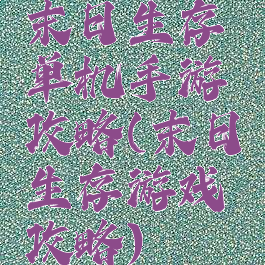 末日生存
单机手游
攻略(末日
生存游戏
攻略)